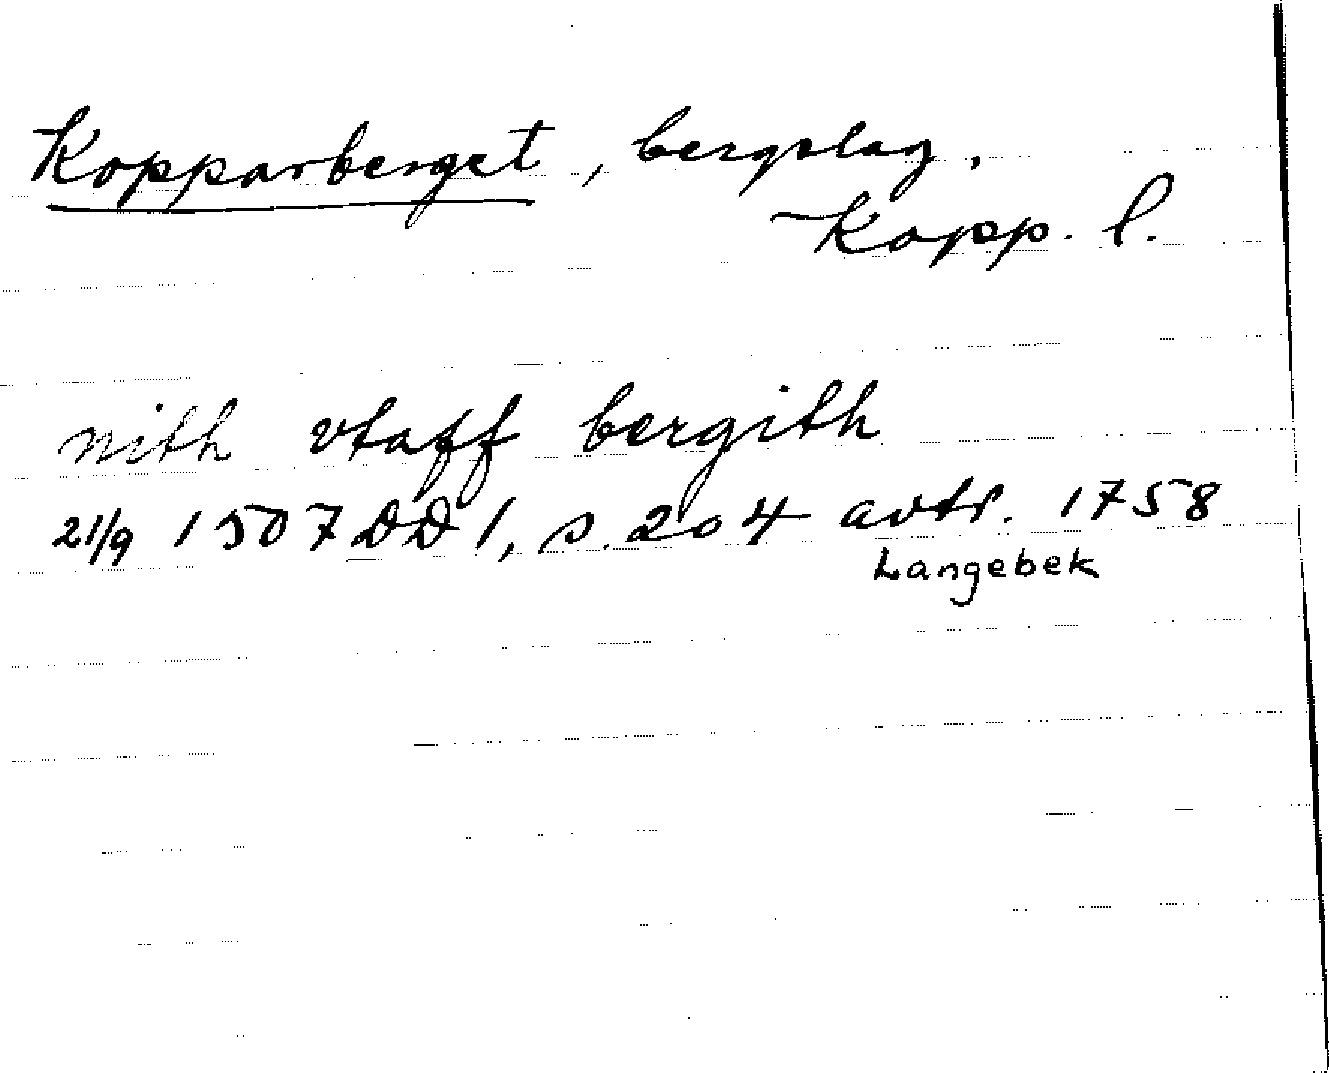 Kopparberget, bergslag,
Kopp. l.
nith vtaff bergith
21/9 1507 DD 1, s. 204 avtr. 1758
Langebek